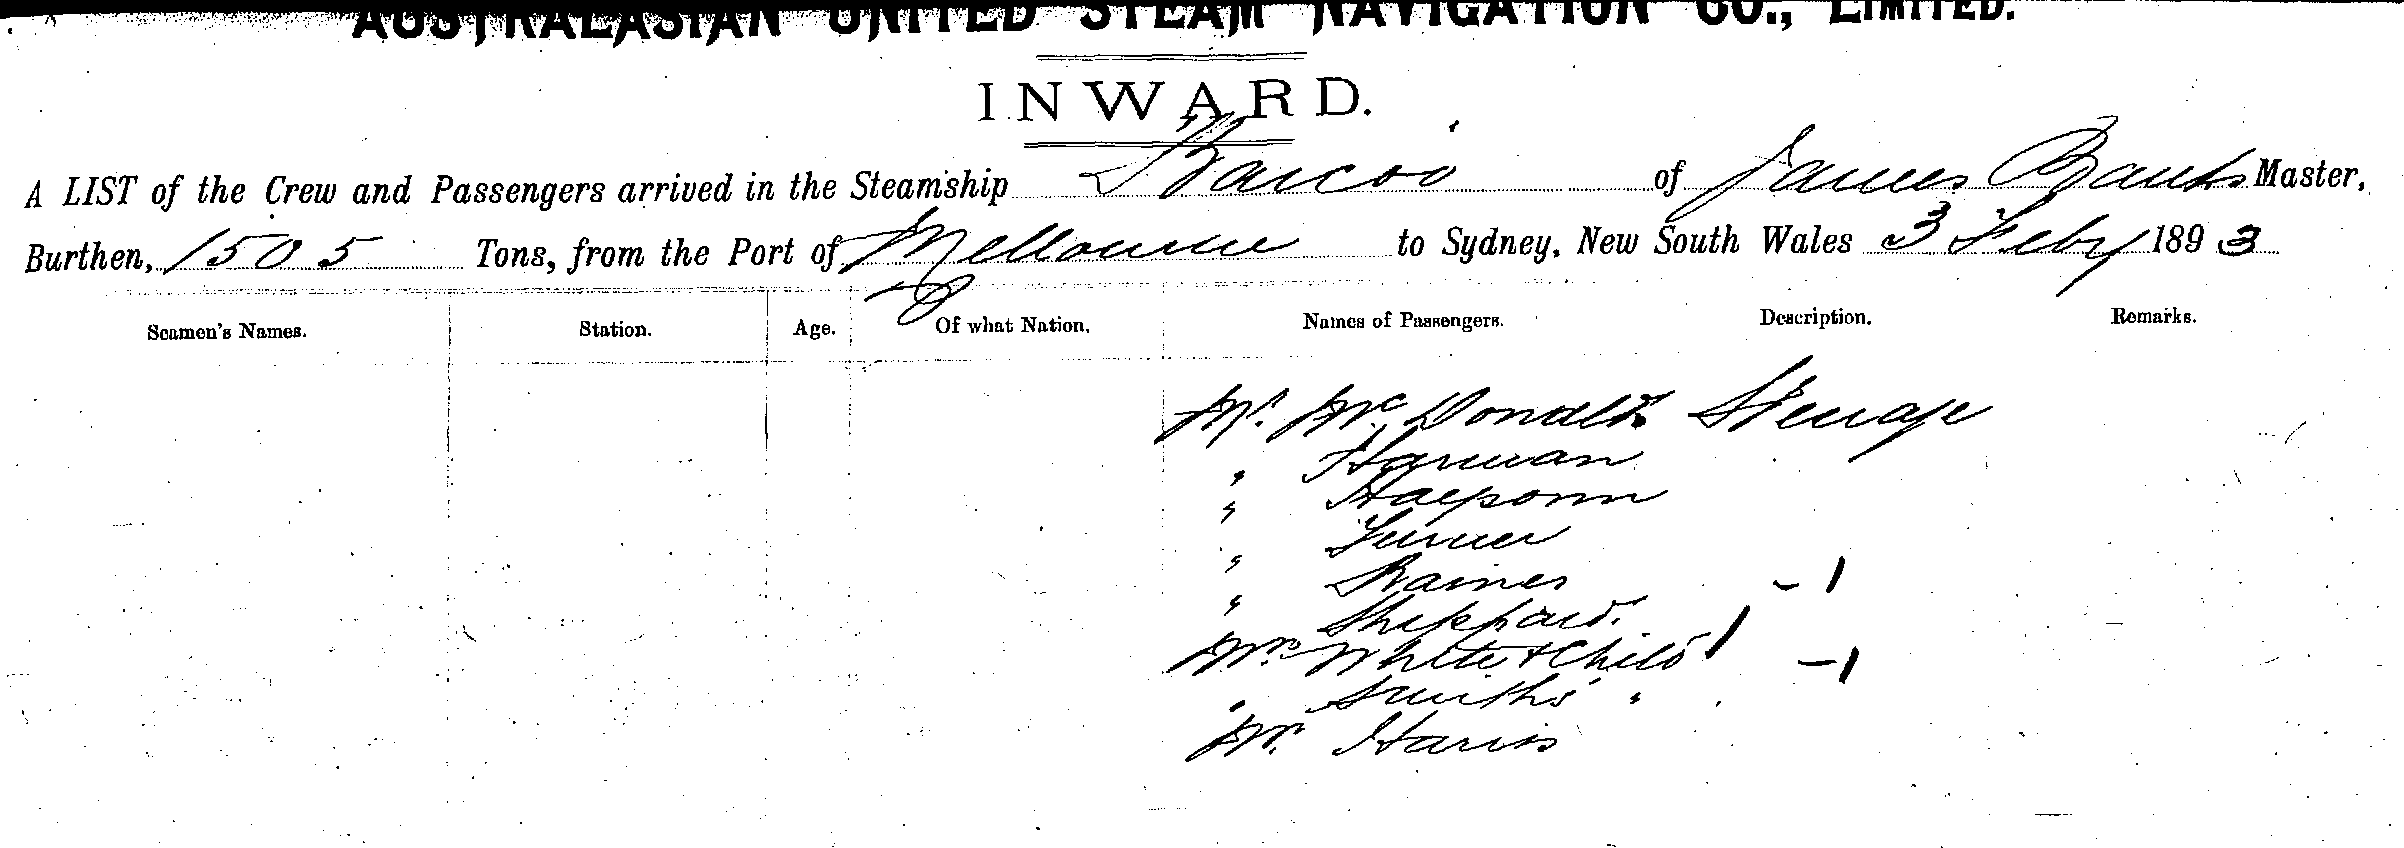 AUSTRALASIAN UNITED STEAM NAVIGATION CO., LIMITED.
INWARD.
A LIST of the Crew and Passengers arrived in the Steamship Barcoo of James Banks Master,
Burthen, 1505 Tons, from the Port of Melbourne to Sydney, New South Wales 3 Feby 1893
Seamen's Names. Station. Age. Of what Nation. Names of Passengers. Description. Remarks.
Mr. McDonald Steerage
" Harman
"
" Turner
" Baines - 1
Sheppard.
Mrs White & Child 1 - 1
" Smiths "
Mr. Harris